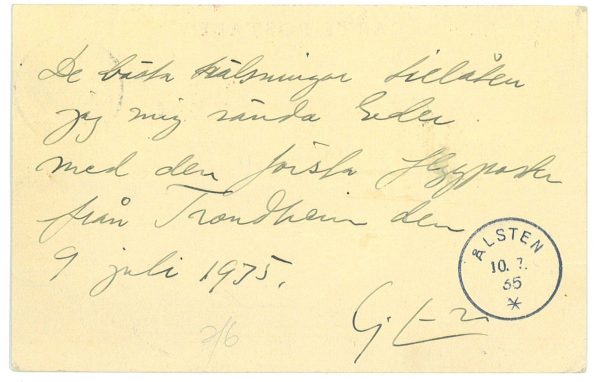 De bästa hälsningar tillåten
jag mig sända Eder
med den första flygposten
från Trondheim den
9 juli 1935.
ÅLSTEN
10. 7.
35
*